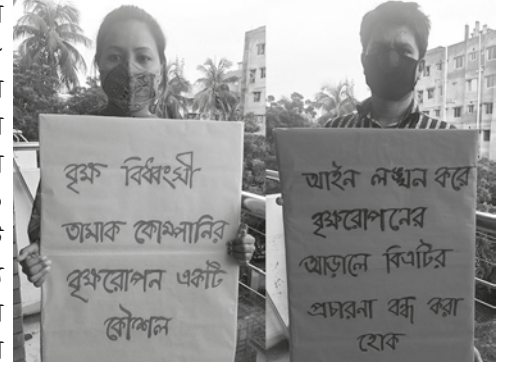 বৃক্ষ বিধ্বংসী
তামাক কোম্পানির
বৃক্ষরোপন একটি
কৌশল
আইন লঙ্ঘন করে
বৃক্ষরোপনের
আড়ালে বিএটির
প্রচারনা বন্ধ করা
হোক